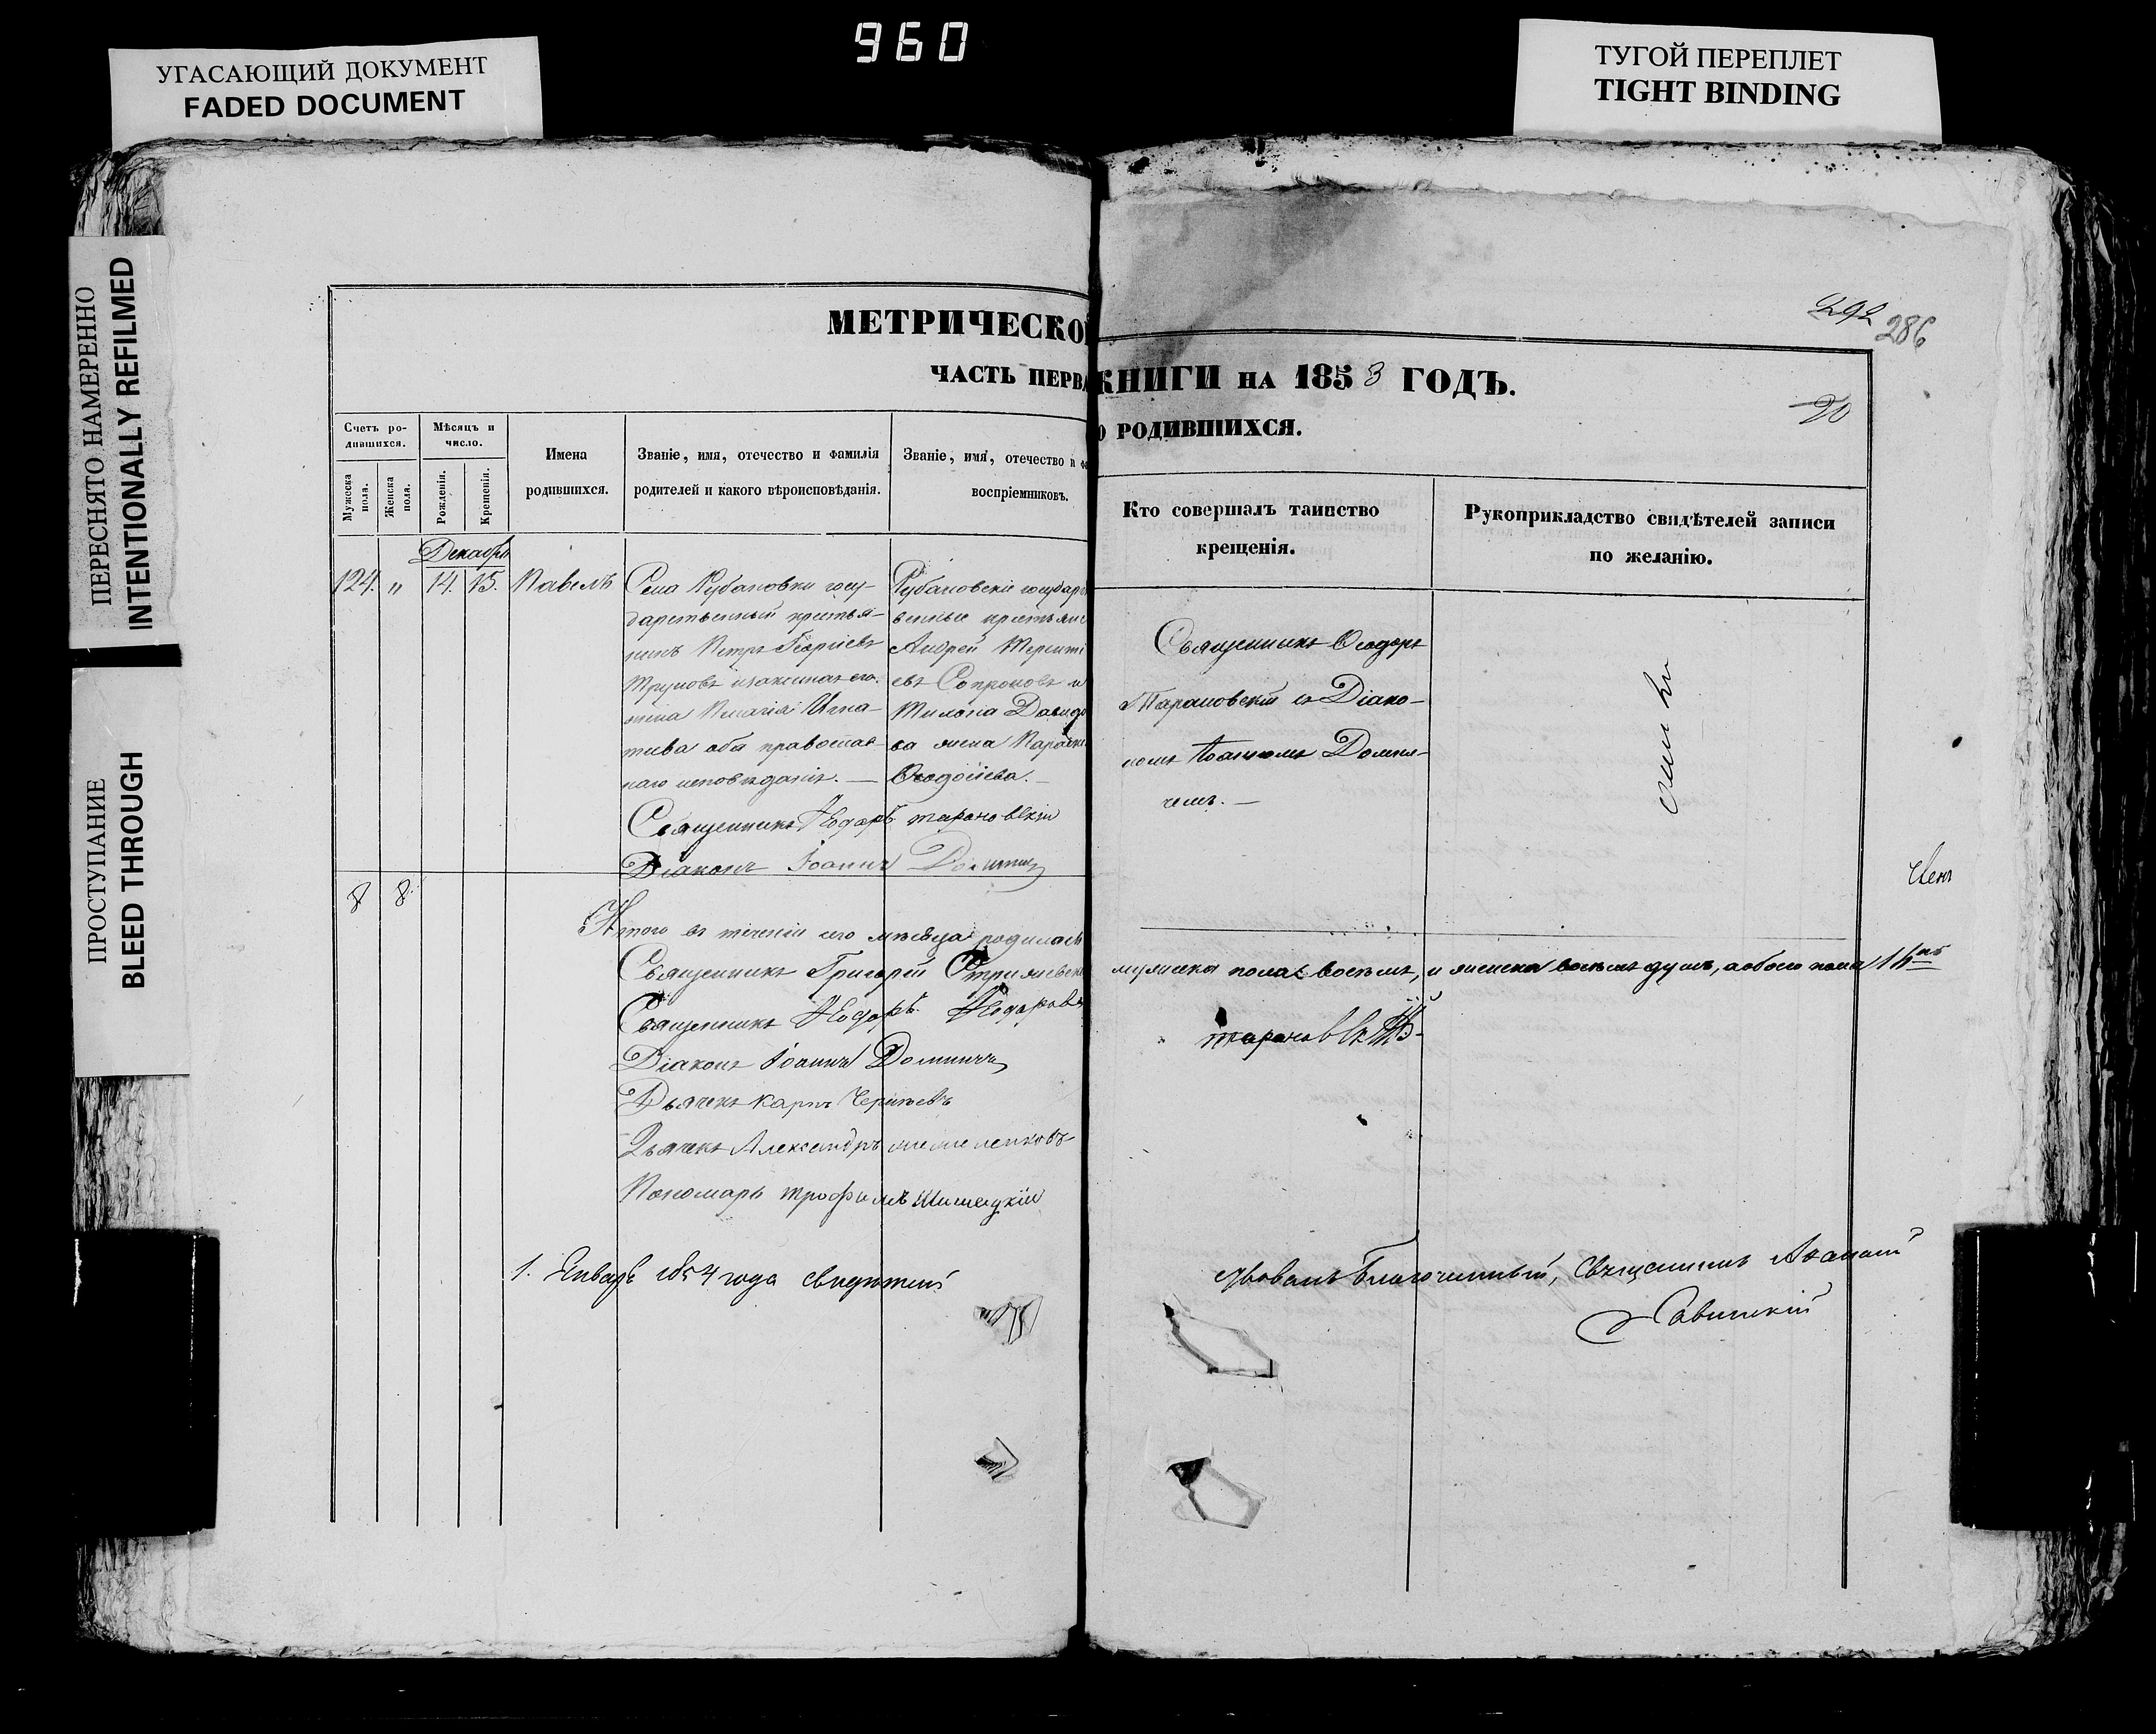 960
УГАСАЮЩИЙ ДОКУМЕНТ
FADED DOCUMENT
ТУГОЙ ПЕРЕПЛЕТ
TIGHT BINDING
ПЕРЕСНЯТО НАМЕРЕННО
INTENTIONALLY REFILMED
ПРОСТУПАНИЕ
BLEED THROUGH
292
286
20
МЕТРИЧЕСКОЙ КНИГИ НА 1853 ГОДЪ.
ЧАСТЬ ПЕРВА О РОДИВШИХСЯ.
Счетъ ро-
дившихся.
Мужеска пола.
Женска пола.
Мѣсяцъ и
число.
Рожденія.
Крещенія.
Имена
родившихся.
Званіе, имя, отечество и фамилія
родителей и какого вѣроисповѣданія.
Званіе, имя, отечество и
воспріемниковъ.
Кто совершалъ таинство
крещенія.
Рукоприкладство свидѣтелей записи
по желанію.
Декабрь
124. " 14. 15. Павелъ
Села Рубановки госу-
дарственный крестья-
нинъ Петръ Георгіевъ
Труновъ и законная его
жена Игна-
тіева оба православ-
наго исповѣданія. —
Рубановскіе государ
венные крестьяне
Андрей Терентi
евъ Сопроновъ и
Давидо
ва жена Параске
Ѳеодосіева. —
Священникъ Ѳеодоръ
Тарановскій съ Діако-
номъ Іоанномъ Домни-
чемъ. —
Священникъ Ѳеодоръ Тарановскій
Діаконъ Іоаннъ Домничъ
8 8.
Итого въ теченіи сего мѣсяца родилось
мужеска пола восемь, и женска восемь душъ, а обоего пола 16ть
Священникъ Григорій
Священникъ Ѳеодоръ Ѳеодоровъ Тарановскій
Діаконъ Іоаннъ Домничъ
Дьячекъ Карпъ
Дьячекъ Александръ
Пономарь Трофимъ
1. Январь 1854 года свидѣтель
ствовалъ Благочинный, Священникъ Ананій
Савицкій